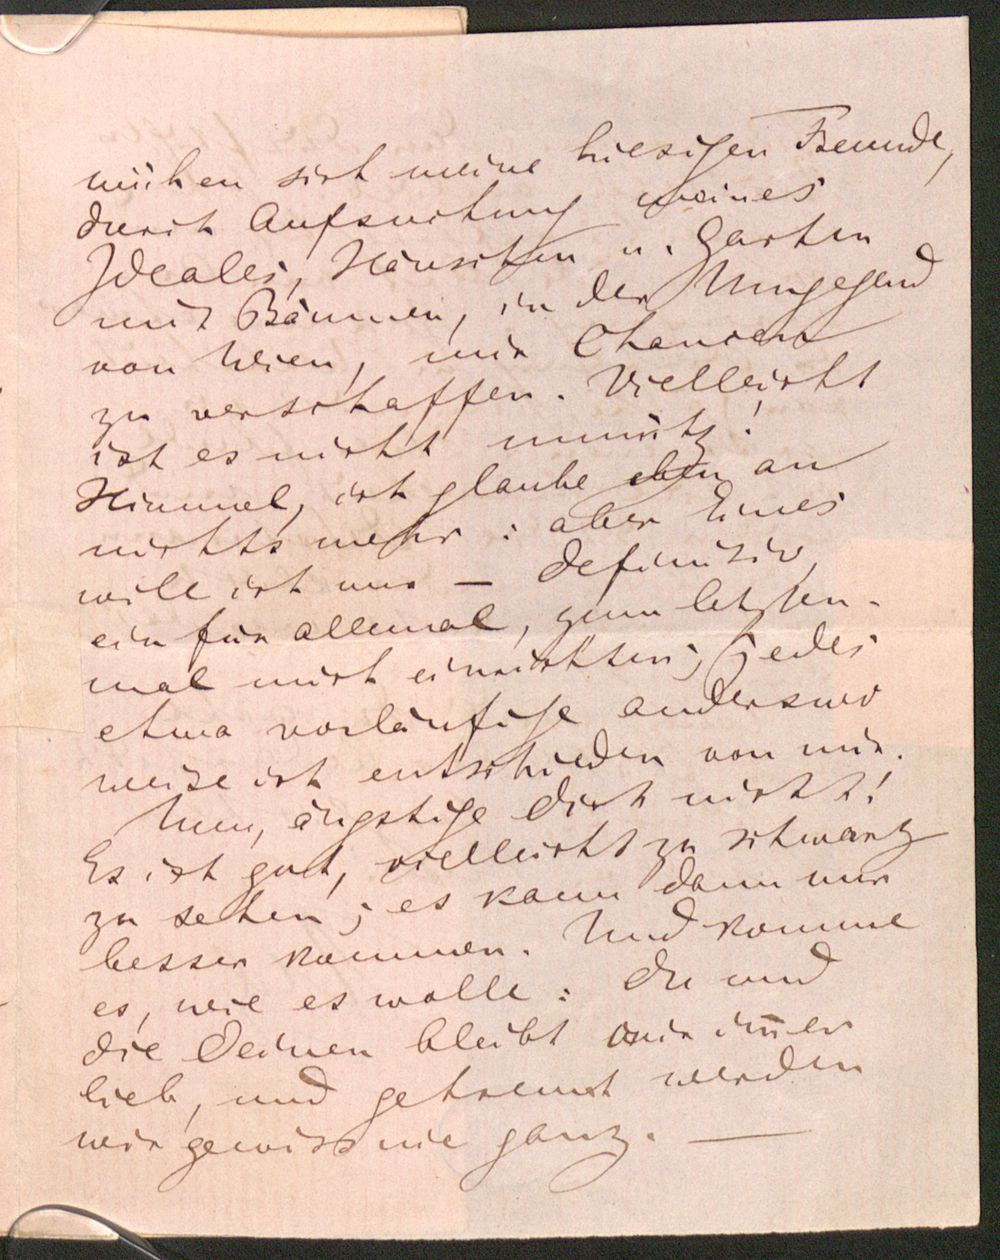 mühen sich meine hiesigen Freunde,
durch Aufsuchung meines
Ideales, Häuschen u. Garten
mit Bäumen, in der Umgegend
von Wien, mir Chancen
zu verschaffen. Vielleicht
ist es nicht unnütz!
Himmel, ich glaube eben an
nichts mehr: aber Eines
will ich nur — definitiv,
ein für allemal, zum letzten-
mal mich einrichten; jedes
etwa vorläufige anderswo
weise ich entschieden von mir.
Nun, ängstige Dich nicht!
Es ist gut, vielleicht zu schwarz
zu sehen; es kann dann nur
besser kommen. Und komme
es, wie es wolle: Du und
die Deinen bleibt mir im̅er
lieb, und getrennt werden
wir gewiss nie ganz. —